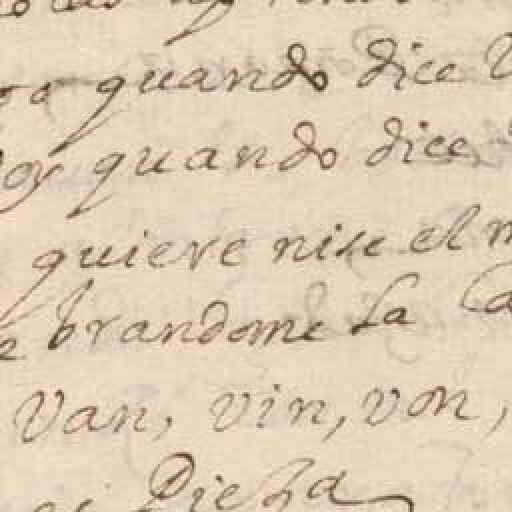 quando dice
oy quando dice
quiere nise el
brandome la ca
Van, vin, von,
Pieza